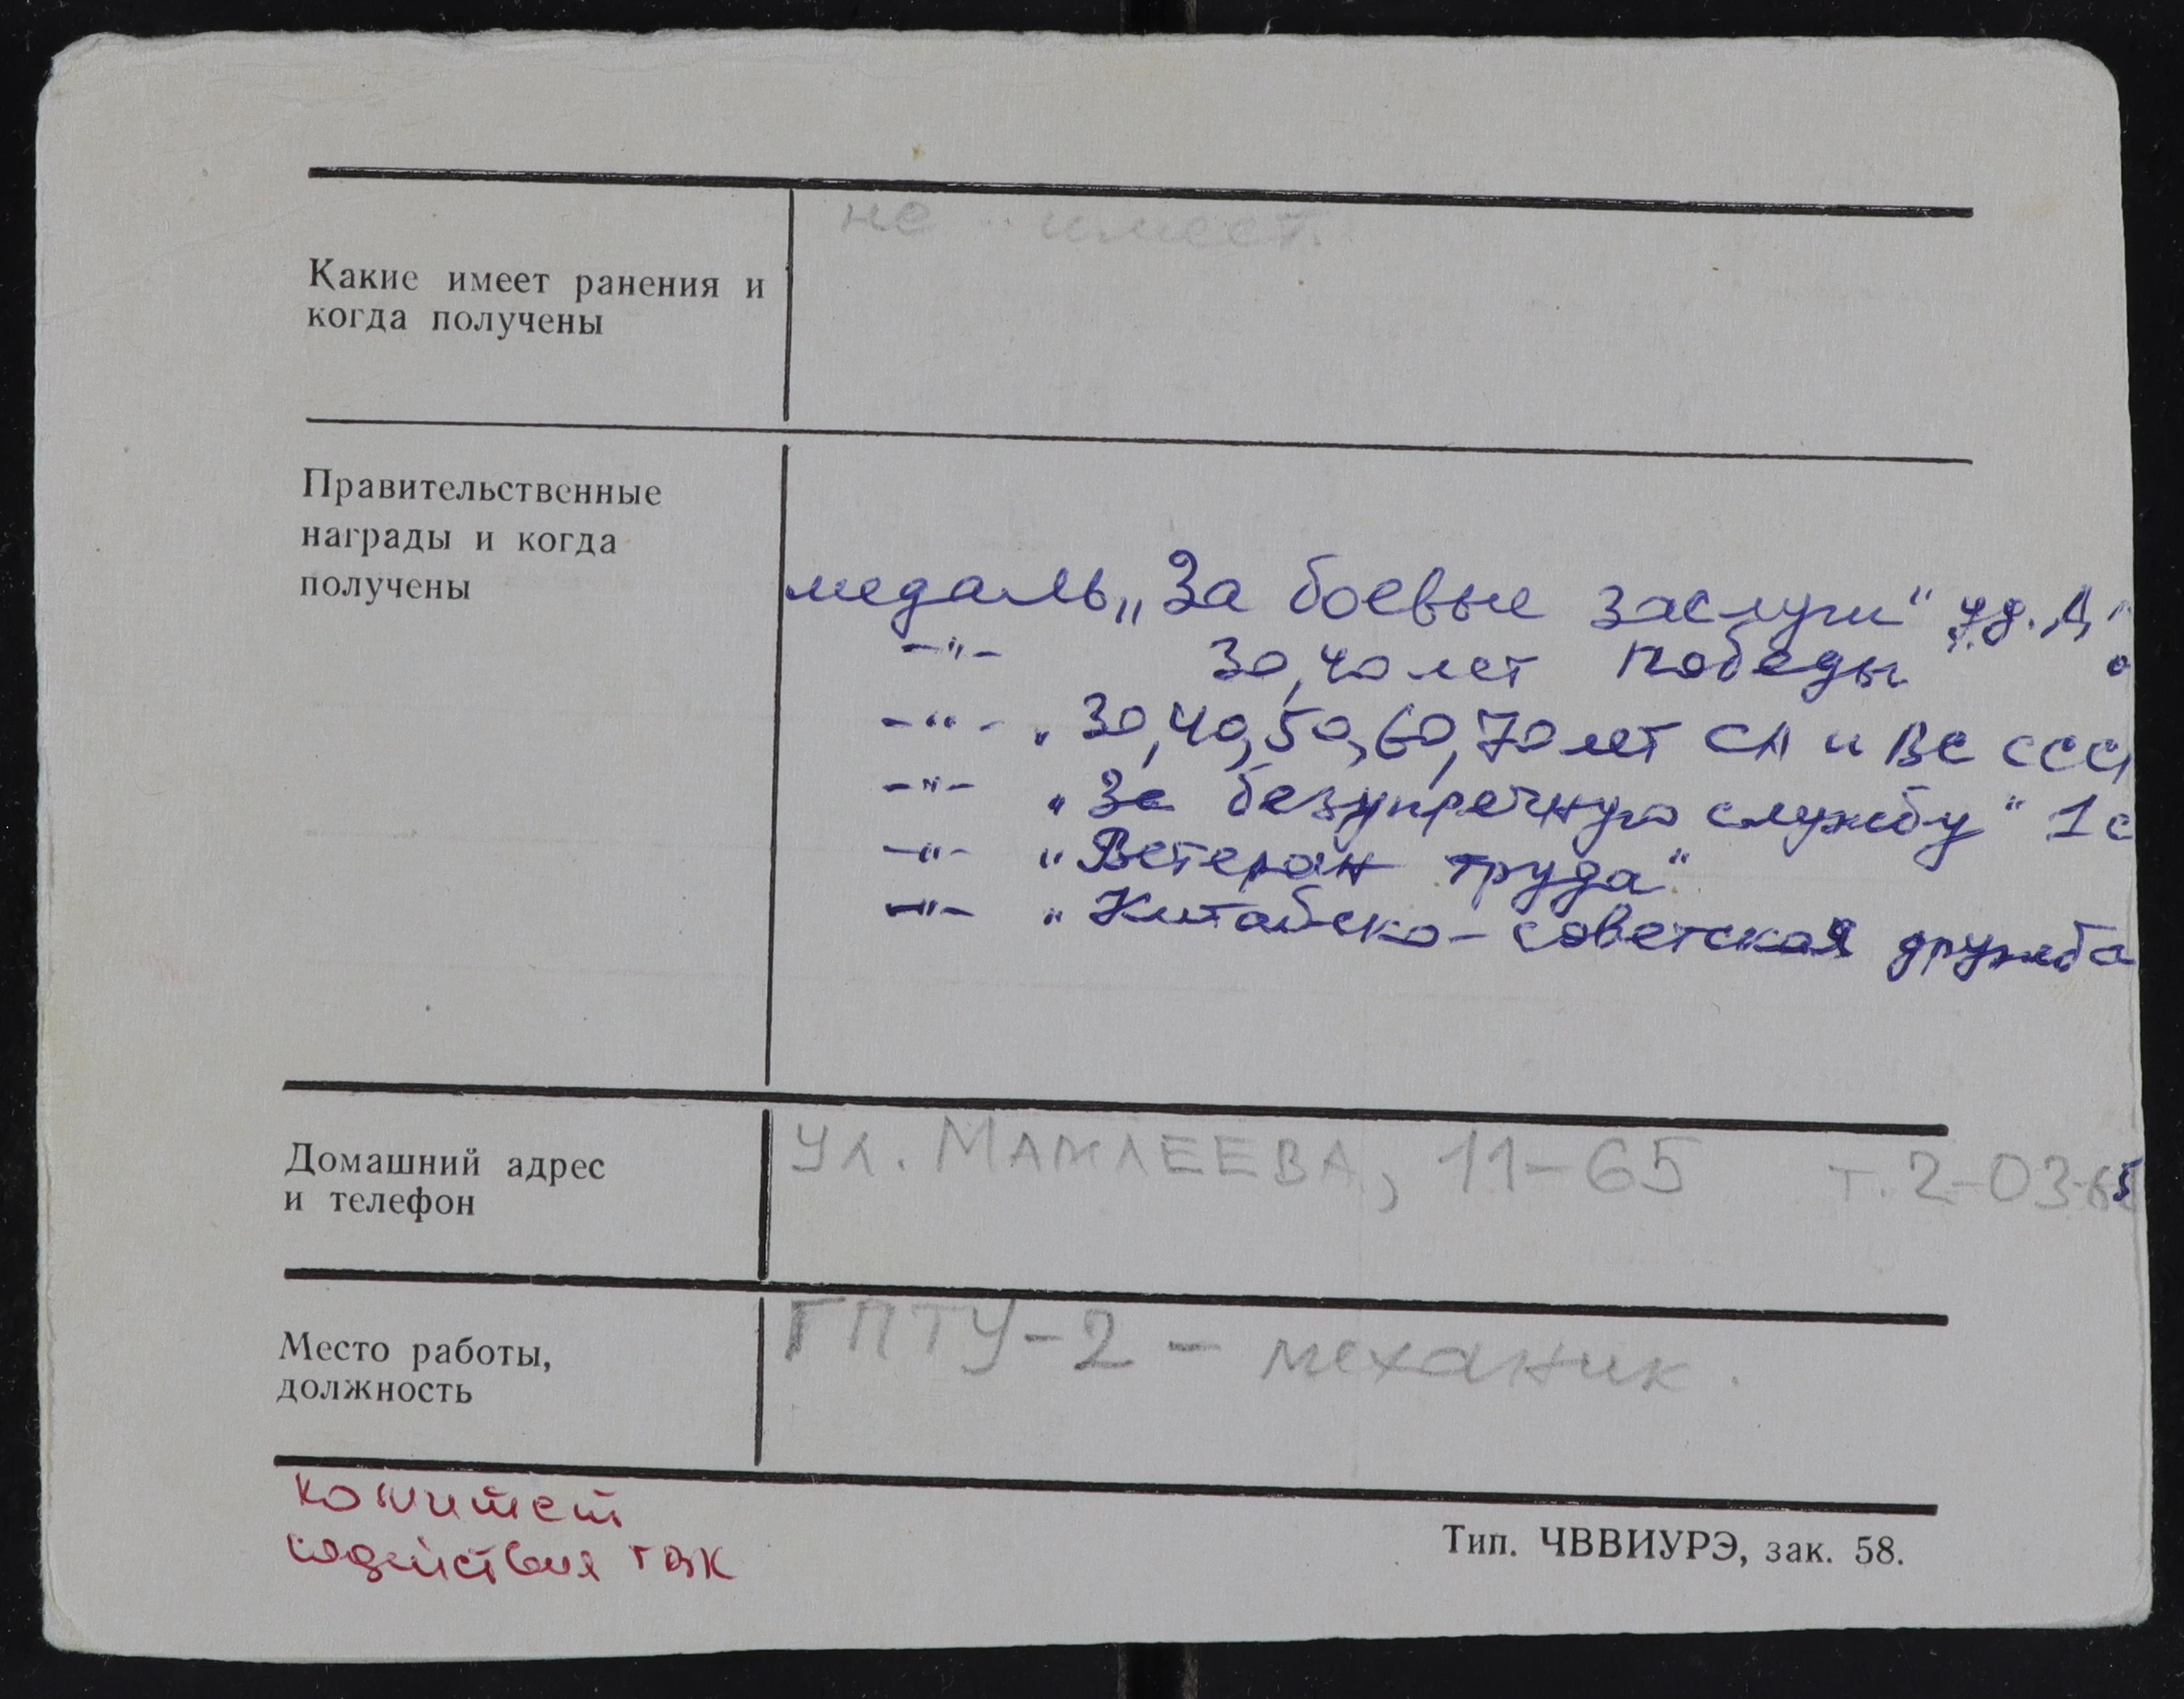 не имеет.
Какие имеет ранения и
когда получены
Правительственные
награды и когда
получены
медаль „За боевые заслуги" уд. А
-"- 30, 40 лет Победы"
-"- „30, 40, 50, 60, 70 лет СА и ВС ССС
-"- „За безупречную службу" 1 с
-"- „Ветеран труда"
-"- „Китайско-советская дружба
Домашний адрес
и телефон
ул. МАМЛЕЕВА, 11-65 т. 2-03-65
Место работы,
должность
ГПТУ-2 - механик.
комитет
содействия ГВК
Тип. ЧВВИУРЭ, зак. 58.